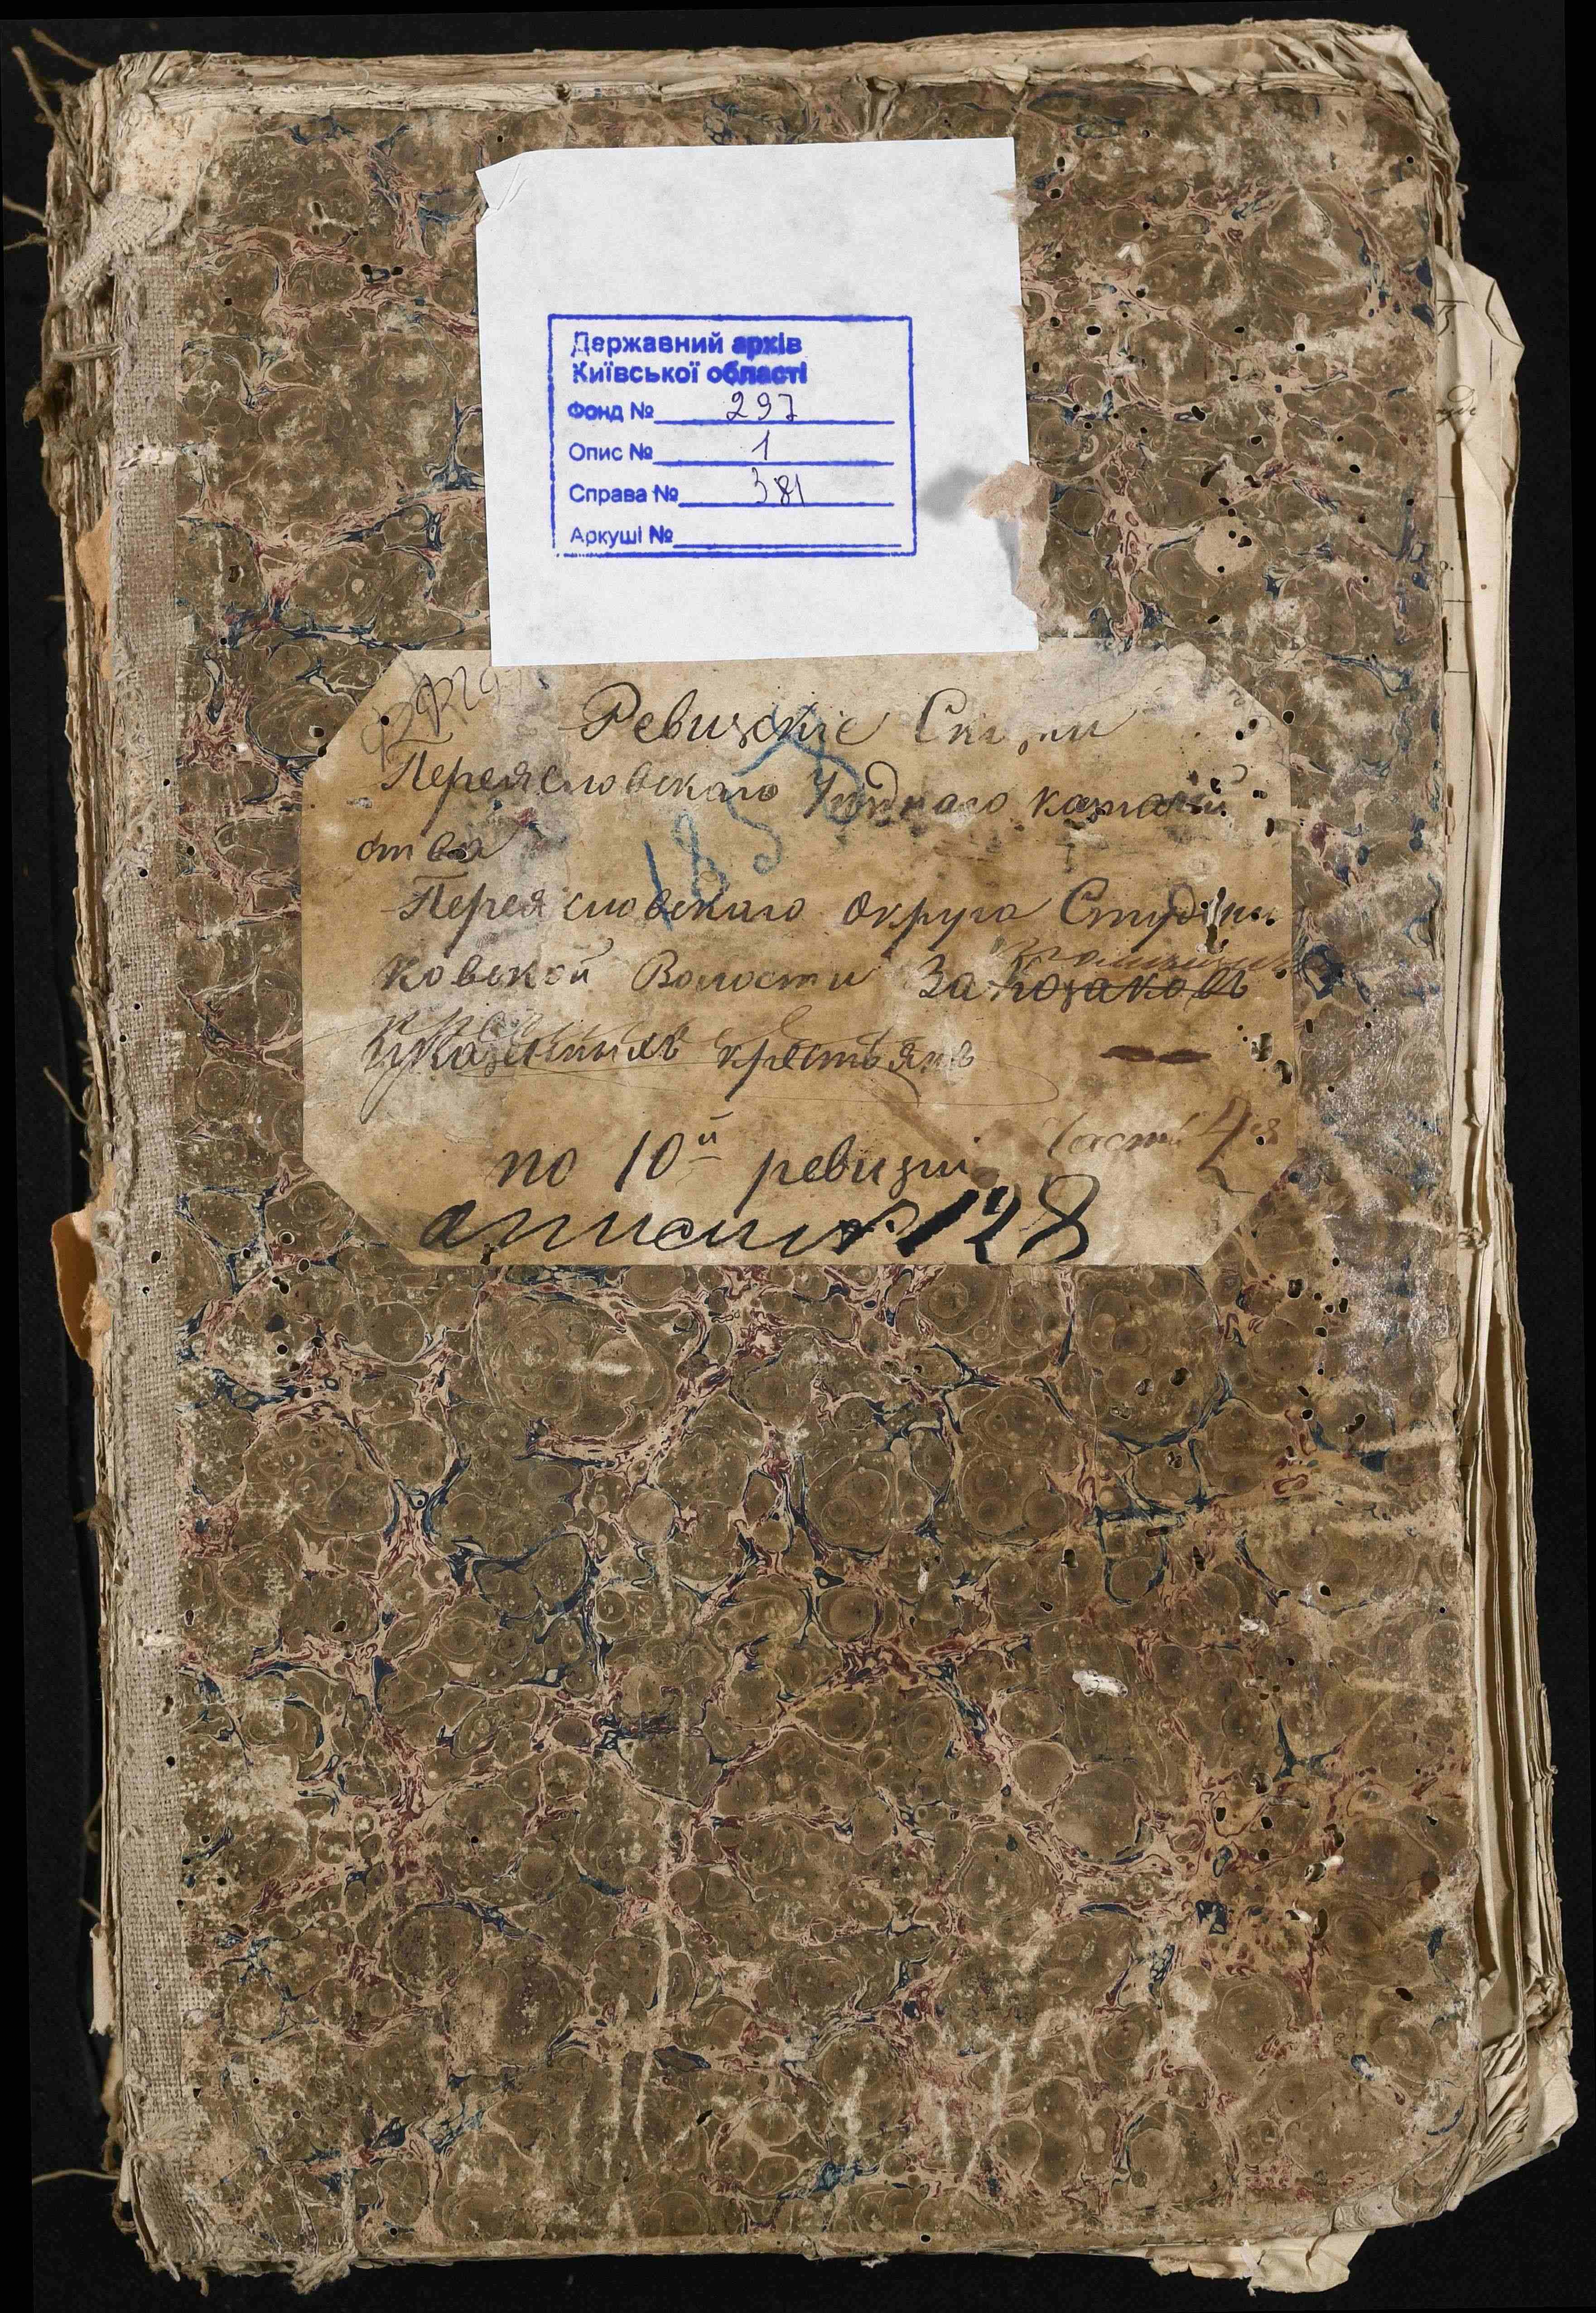 Державний архів
Київської області
Фонд № 297
Опис № 1
Справа № 381
Аркуші №
Ревизскіе Сказки
Переясловскаго Уезднаго казначей
ства
185
Переясловскаго округа Студени
ковской Волости За козаковъ
и казенныхъ крестьянъ
Часть 2я
по 10й ревизіи
описи № 128